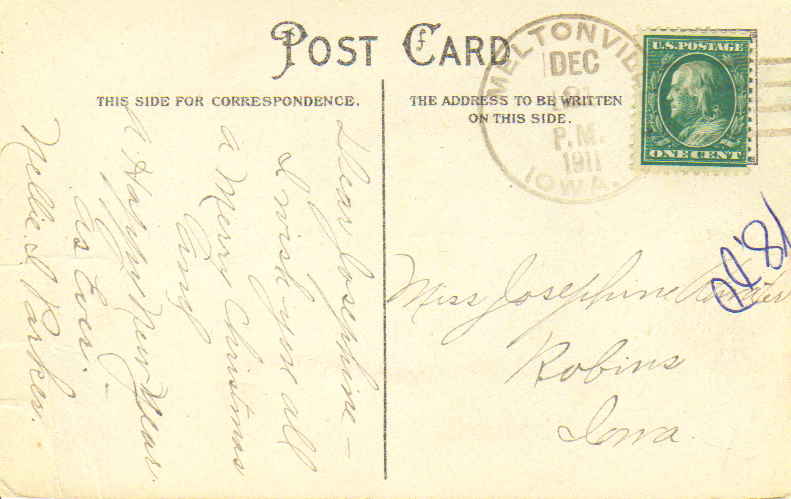 POST CARD
THIS SIDE FOR CORRESPONDENCE.
THE ADDRESS TO BE WRITTEN
ON THIS SIDE.
MELTONVILL
DEC
P.M.
1911
IOWA.
U.S.POSTAGE
ONE CENT
Dear Josephine –
I wish you all
a Merry Christmas
and
A Happy New Year.
As Ever –
Nellie. I Parker.
Miss Josephine
Robins
Iowa.